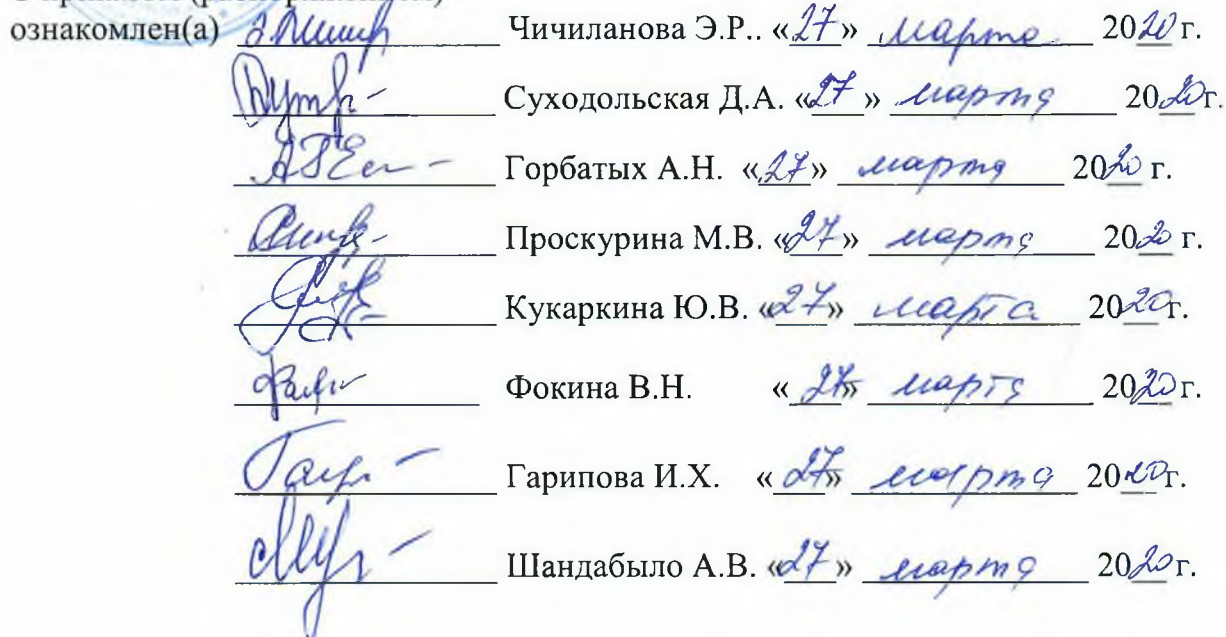 ознакомлен(а) Чичиланова Э.Р.. «27» марта 2020 г.
Суходольская Д.А. «27» марта 2020г.
Горбатых А.Н. «27» марта 2020 г.
Проскурина М.В. «27» марта 2020 г.
Кукаркина Ю.В. «27» марта 2020г.
Фокина В.Н. «27» марта 2020г.
Гарипова И.Х. «27» марта 2020г.
Шандабыло А.В. «27» марта 2020г.